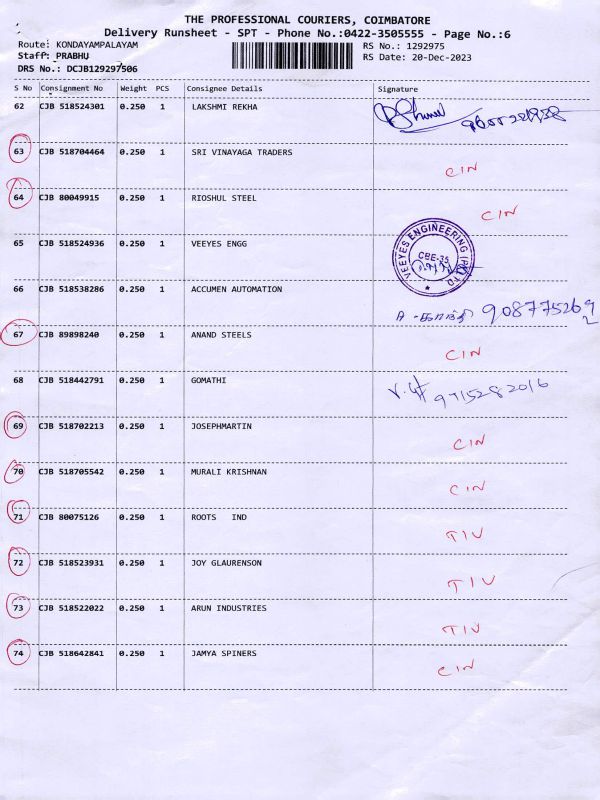 THE PROFESSIONAL COURIERS, COIMBATORE
Delivery Runsheet - SPT - Phone No.:0422-3505555 - Page No.:6
Route: KONDAYAMPALAYAM RS No.: 1292975
Staff: PRABHU RS Date: 20-Dec-2023
DRS No.: DCJB129297506
S No Consignment No Weight PCS Consignee Details Signature
62 CJB 518524301 0.250 1 LAKSHMI REKHA
63 CJB 518704464 0.250 1 SRI VINAYAGA TRADERS CIN
64 CJB 80049915 0.250 1 RIOSHUL STEEL CIN
65 CJB 518524936 0.250 1 VEEYES ENGG VEEYES ENGINEERING (P) LTD CBE-35
66 CJB 518538286 0.250 1 ACCUMEN AUTOMATION
67 CJB 89898240 0.250 1 ANAND STEELS CIN
68 CJB 518442791 0.250 1 GOMATHI 9715282016
69 CJB 518702213 0.250 1 JOSEPHMARTIN CIN
70 CJB 518705542 0.250 1 MURALI KRISHNAN CIN
71 CJB 80075126 0.250 1 ROOTS IND TIV
72 CJB 518523931 0.250 1 JOY GLAURENSON TIV
73 CJB 518522022 0.250 1 ARUN INDUSTRIES TIV
74 CJB 518642841 0.250 1 JAMYA SPINERS CIN